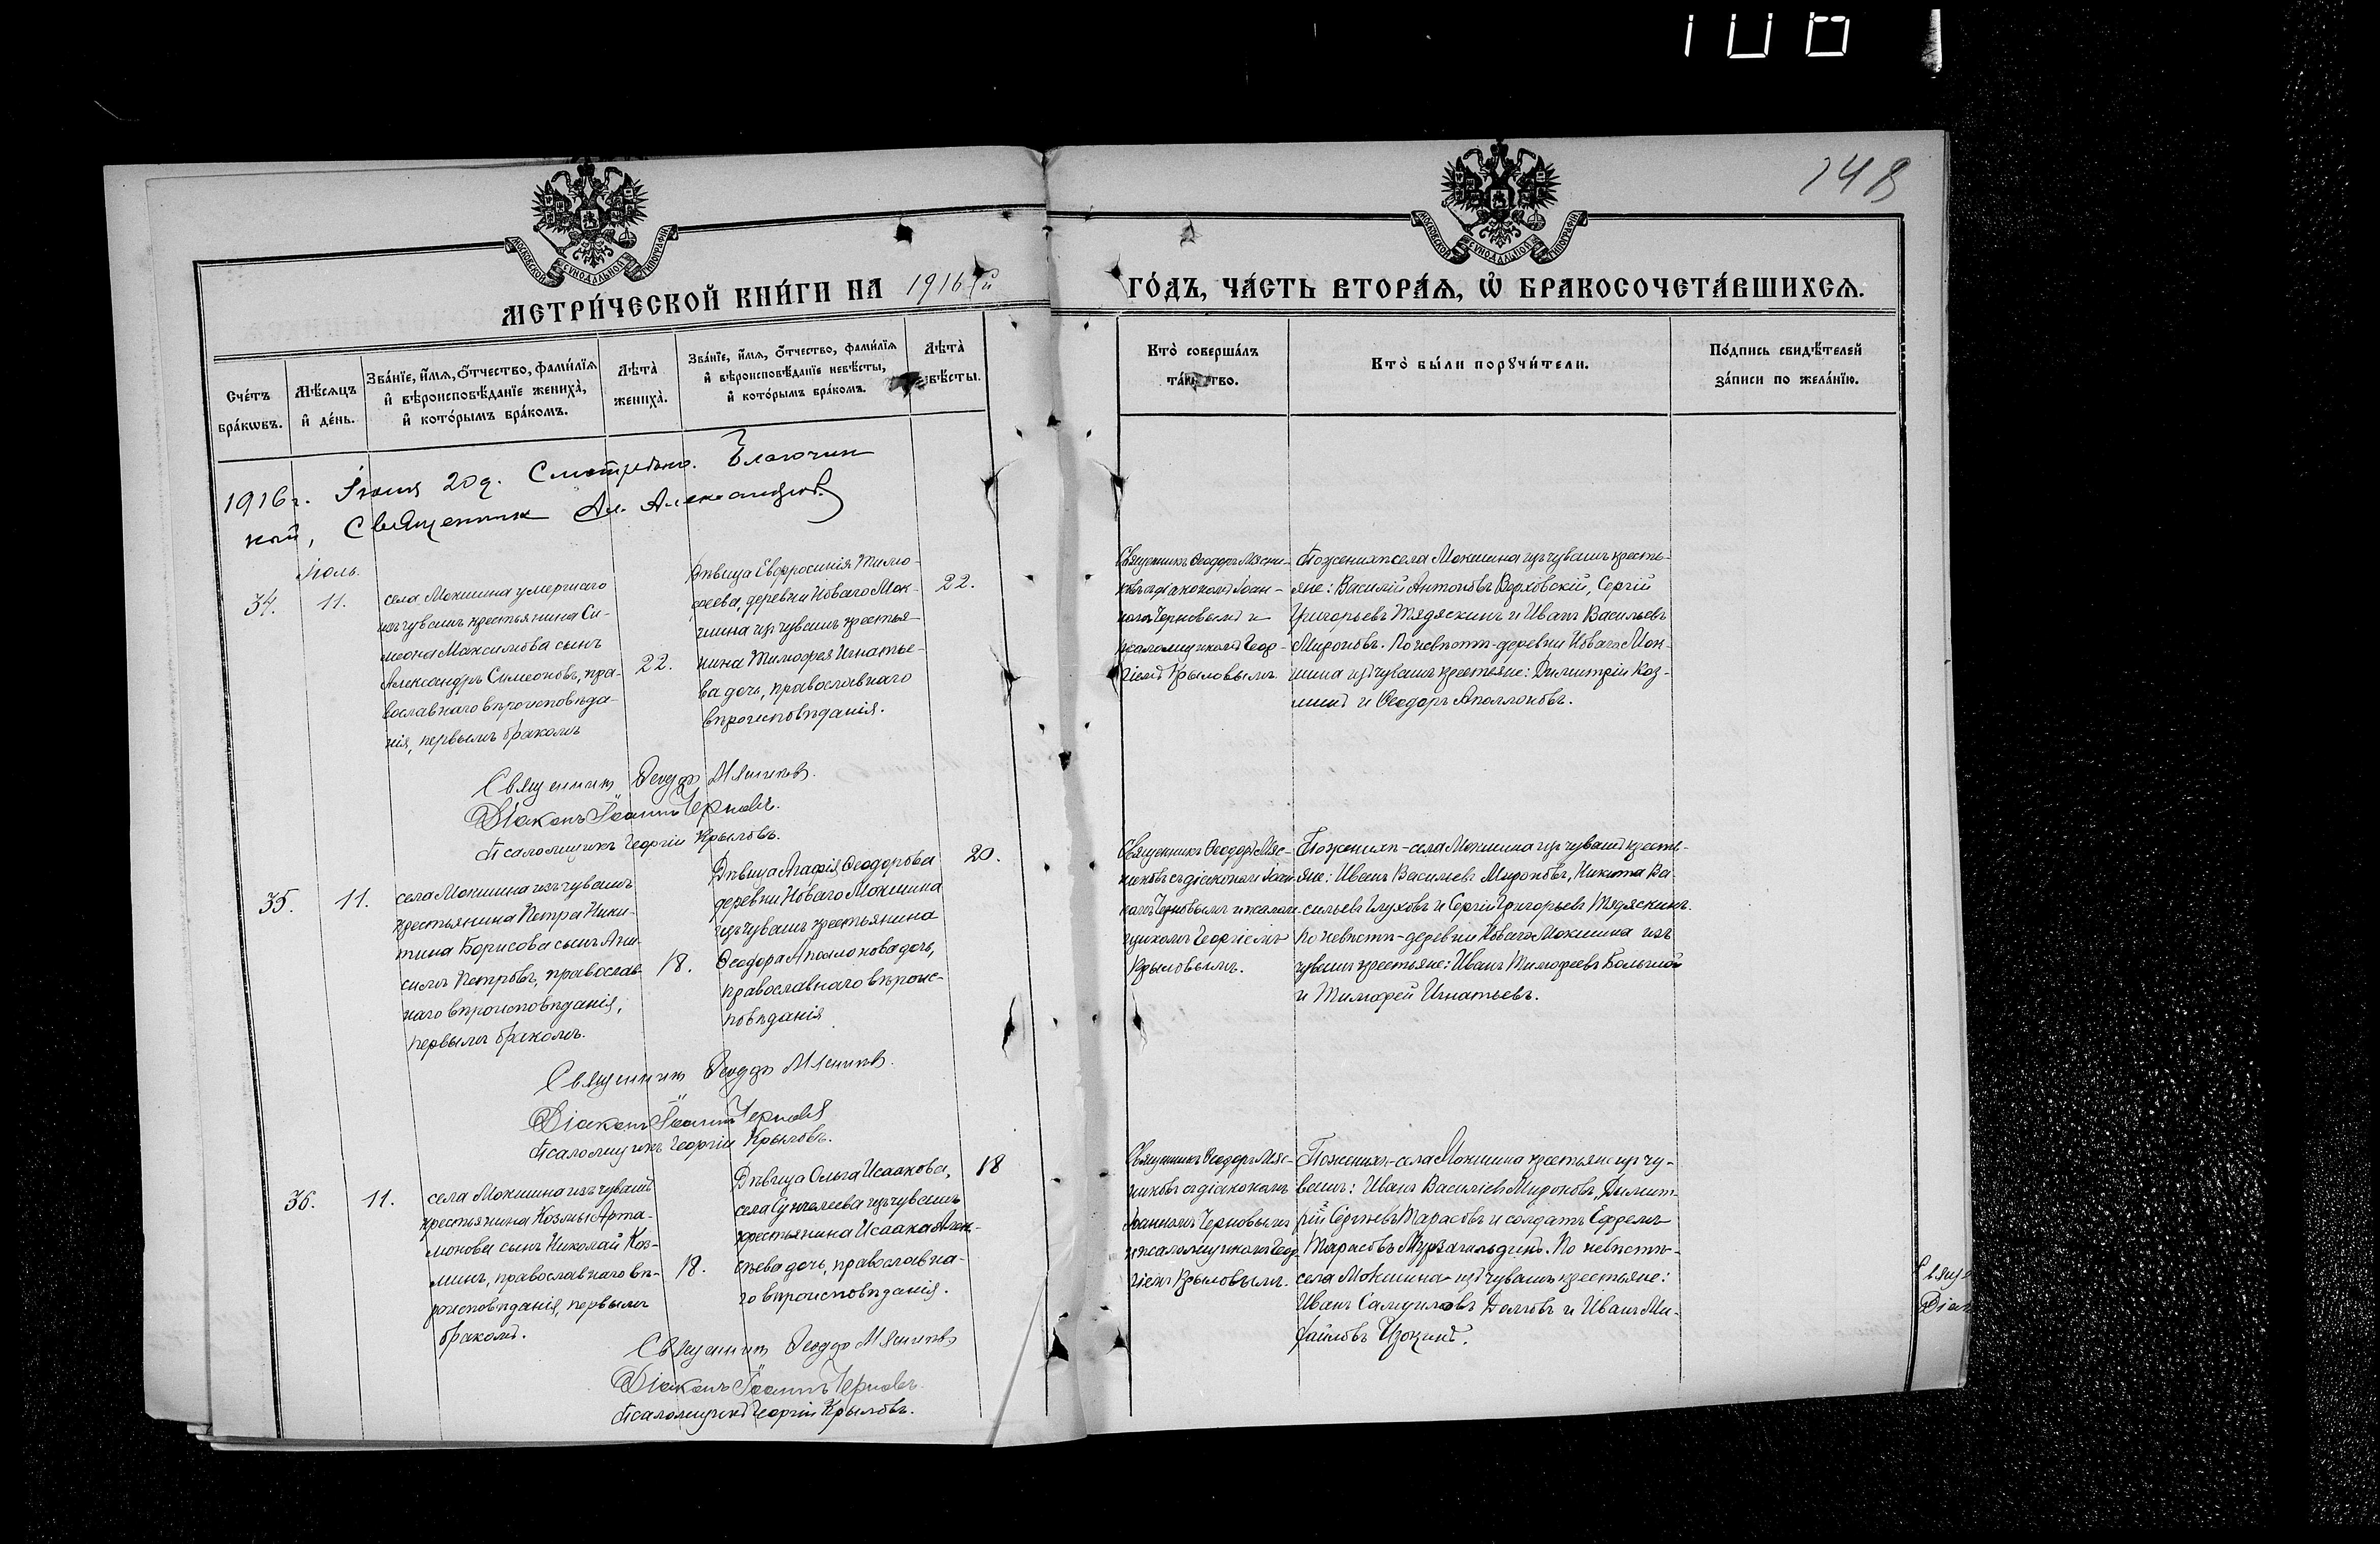 148
МЕТРИ́ЧЕСКОЙ КНИ́ГИ НА 1916 й
ГО́ДЪ, ЧА́СТЬ ВТОРА́Я, Ѡ БРАКОСОЧЕТА́ВШИХСЯ.
МОСКОВСКОЙ СУНОДАЛЬНОЙ ТИПОГРАФІИ
МОСКОВСКОЙ СУНОДАЛЬНОЙ ТИПОГРАФІИ
Сче́тъ бра́кѡвъ.
Мѣ́сяцъ и҆ де́нь.
Зва́нїе, и҆́мя, ѻ҆́тчество, фами́лїя и҆ вѣроисповѣ́данїе жениха̀, и҆ кото́рымъ бра́комъ.
Лѣта̀ жениха̀.
Зва́нїе, и҆́мя, ѻ҆́тчество, фами́лїя и҆ вѣроисповѣ́данїе невѣ́сты, и҆ кото́рымъ бра́комъ.
Лѣта̀ невѣ́сты.
Кто̀ соверша́лъ та́инство.
Кто̀ бы́ли порꙋчи́тели.
По́дпись свидѣ́телей за́писи по жела́нїю.
1916 г. Іюня 20 д. Смотрѣно. Благочин
ный, Священник Ал. Александров
Іюль.
34.
11.
села Мокшина умершаго
изъ чувашъ крестьянина Си-
меона Максимова сынъ
Александръ Симеоновъ, пра-
вославнаго вѣроисповѣда-
нія, первымъ бракомъ
22.
Дѣвица Евфросинія Тимо-
феева, деревни Новаго Мок-
шина изъ чувашъ крестья-
нина Тимофея Игнатье-
ва дочь, православнаго
вѣроисповѣданія.
22.
Священникъ Ѳеодоръ Мясни-
ковъ съ діакономъ Іоан-
номъ Черновымъ и
псаломщикомъ Геор-
гіемъ Крыловымъ.
По женихѣ села Мокшина изъ чувашъ кресть-
яне: Василій Антоновъ Верховскій, Сергій
Григорьевъ Тядяскинъ и Иванъ Васильевъ
Мироновъ. По невѣстѣ - деревни Новаго Мок-
шина изъ чувашъ крестьяне: Димитрій Коз-
минъ и Ѳеодоръ Аполлоновъ.
Священник Ѳеодоръ Мясников.
Діаконъ Іоаннъ Черновъ.
Псаломщикъ Георгій Крыловъ.
35.
11.
села Мокшина изъ чувашъ
крестьянина Петра Ники-
тина Борисова сынъ
симъ Петровъ, православ-
наго вѣроисповѣданія,
первымъ бракомъ.
18.
Дѣвица Агафія Ѳеодорова
деревни Новаго Мокшина
изъ чувашъ крестьянина
Ѳеодора Аполлонова дочь,
православнаго вѣроис-
повѣданія
20.
Священникъ Ѳеодоръ Мяс-
никовъ съ діакономъ Іоан-
номъ Черновымъ и псалом-
щикомъ Георгіемъ
Крыловымъ.
По женихѣ - села Мокшина изъ чувашъ кресть-
яне: Иванъ Васильевъ Мироновъ, Никита Ва-
сильевъ Глуховъ и Сергій Григорьевъ Тядяскинъ.
По невѣстѣ - деревни Новаго Мокшина изъ
чувашъ крестьяне: Иванъ Тимофеевъ Большой
и Тимофей Игнатьевъ.
Священник Ѳеодоръ Мясников.
Діаконъ Іоаннъ Черновъ
Псаломщикъ Георгій Крыловъ.
36.
11.
села Мокшина изъ чувашъ
крестьянина Козмы Арта-
монова сынъ Николай Коз-
минъ, православнаго вѣ-
роисповѣданія, первымъ
бракомъ.
18.
Дѣвица Ольга Исаакова,
села Сунчелеева изъ чувашъ
крестьянина Исаака Алек-
сѣева дочь, православна-
го вѣроисповѣданія.
18
Священникъ Ѳеодоръ Мяс-
никовъ съ діакономъ
Іоанномъ Черновымъ
и псаломщикомъ Геор-
гіемъ Крыловымъ.
По женихѣ - села Мокшина крестьяне изъ чу-
вашъ: Иванъ Василіевъ Мироновъ, Димит-
рій Сергѣевъ Тарасовъ и солдатъ Ефремъ
Тарасовъ Мурзагильдинъ. По невѣстѣ -
села Мокшина изъ чувашъ крестьяне:
Иванъ Самуиловъ Долговъ и Иванъ Ми-
хайловъ
Священник Ѳеодоръ Мясников
Діаконъ Іоаннъ Черновъ.
Псаломщикъ Георгій Крыловъ.